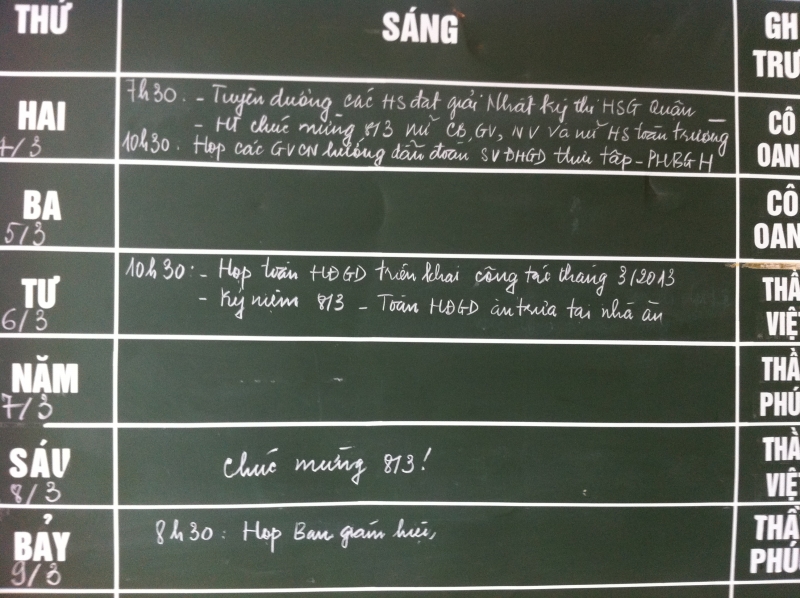 THỨ SÁNG GH
TRƯ
HAI 7h30: - Tuyên dương các HS đạt giải Nhất kỳ thi HSG Quận CÔ
4/3 - HT chúc mừng 8/3 nữ CB, GV, NV và nữ HS toàn trường OAN
10h30: Họp các GVCN hướng dẫn đoàn SVĐHGD thực tập - PHBGH
BA CÔ
5/3 OAN
TƯ 10h30: - Họp toàn HĐGD triển khai công tác tháng 3/2013 THẦ
6/3 - Kỷ niệm 8/3 - Toàn HĐGD ăn trưa tại nhà ăn VIỆ
NĂM THẦ
7/3 PHÚ
SÁU Chúc mừng 8/3! THẦ
8/3 VIỆ
BẢY 8h30: Họp Ban giám hiệu, THẦ
9/3 PHÚ